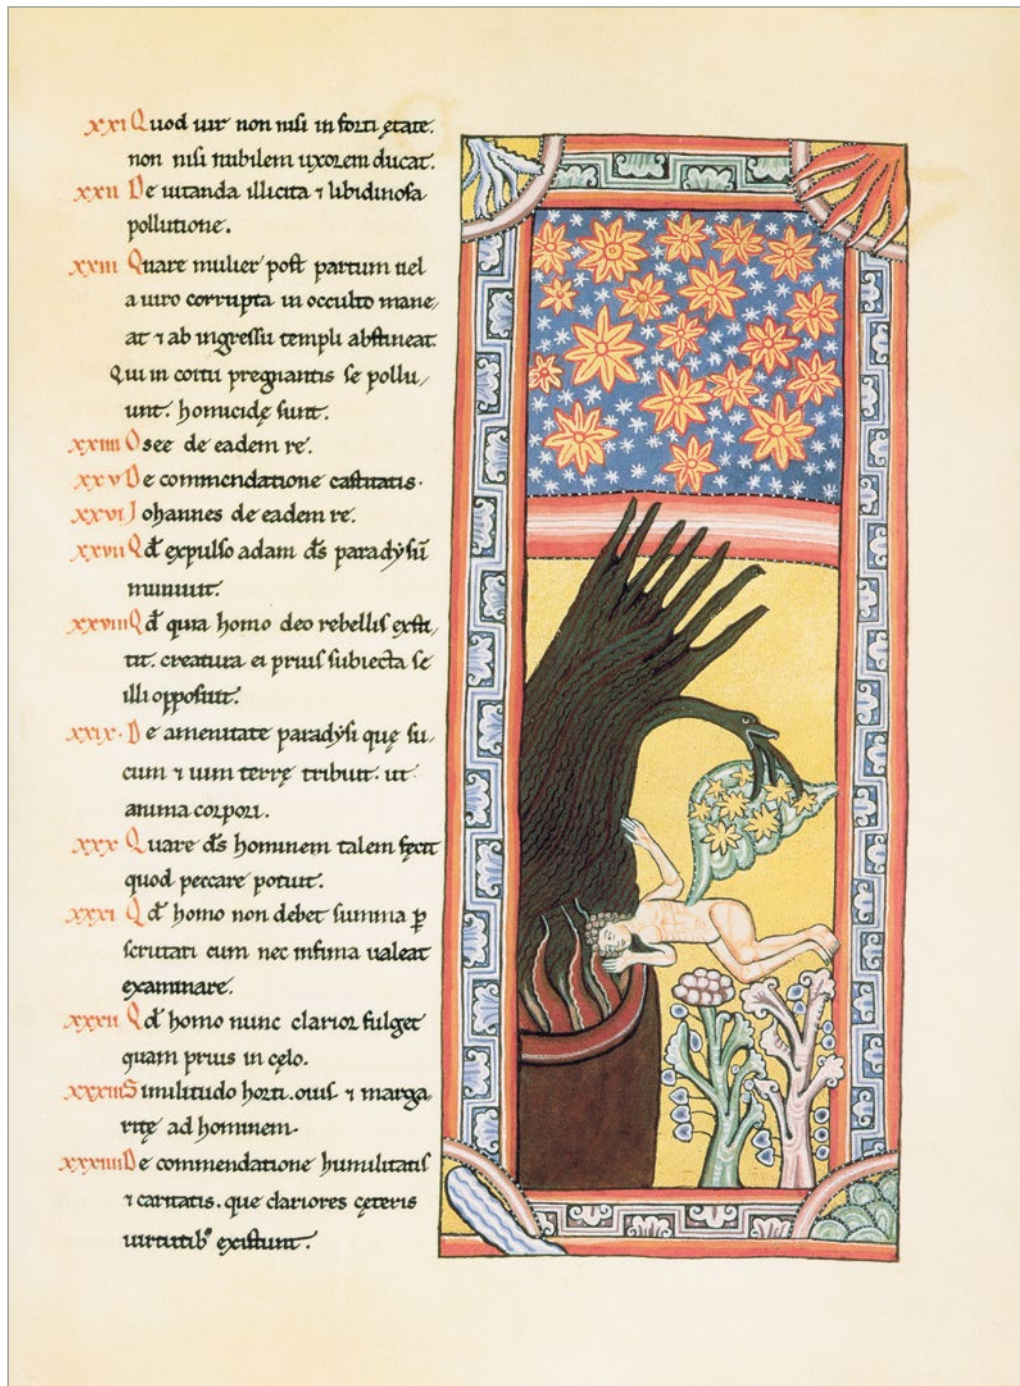 xxi Quod uir non nisi in forti ętate.
non nisi nubilem uxorem ducat.
xxii De uitanda illicita ⁊ libidinosa
pollutione.
xxiii Quare mulier post partum uel
a uiro corrupta in occulto mane/
at ⁊ ab ingressu templi abstineat.
Qui in coitu pregnantis se pollu/
unt. homicidę sunt.
xxiiii Osee de eadem re.
xxv De commendatione castitatis.
xxvi Johannes de eadem re.
xxvii Qđ expulso adam ds̄ paradẏsū
muniuit.
xxviii Qđ quia homo deo rebellis exsti/
tit. creatura ei prius subiecta se
illi opposuit.
xxix. De amenitate paradẏsi quę su/
cum ⁊ uim terrę tribuit. ut
anima corpori.
xxx Quare ds̄ hominem talem fęcit
quod peccare potuit.
xxxi Qđ homo non debet summa ꝑ
scrutari cum nec infima ualeat
examinare.
xxxii Qđ homo nunc clarior fulget
quam prius in cęlo.
xxxiii Similitudo horti. ouis ⁊ marga/
ritę ad hominem.
xxxiiii De commendatione humilitatis
⁊ caritatis. que clariores cęteris
uirtutibꝰ existunt.